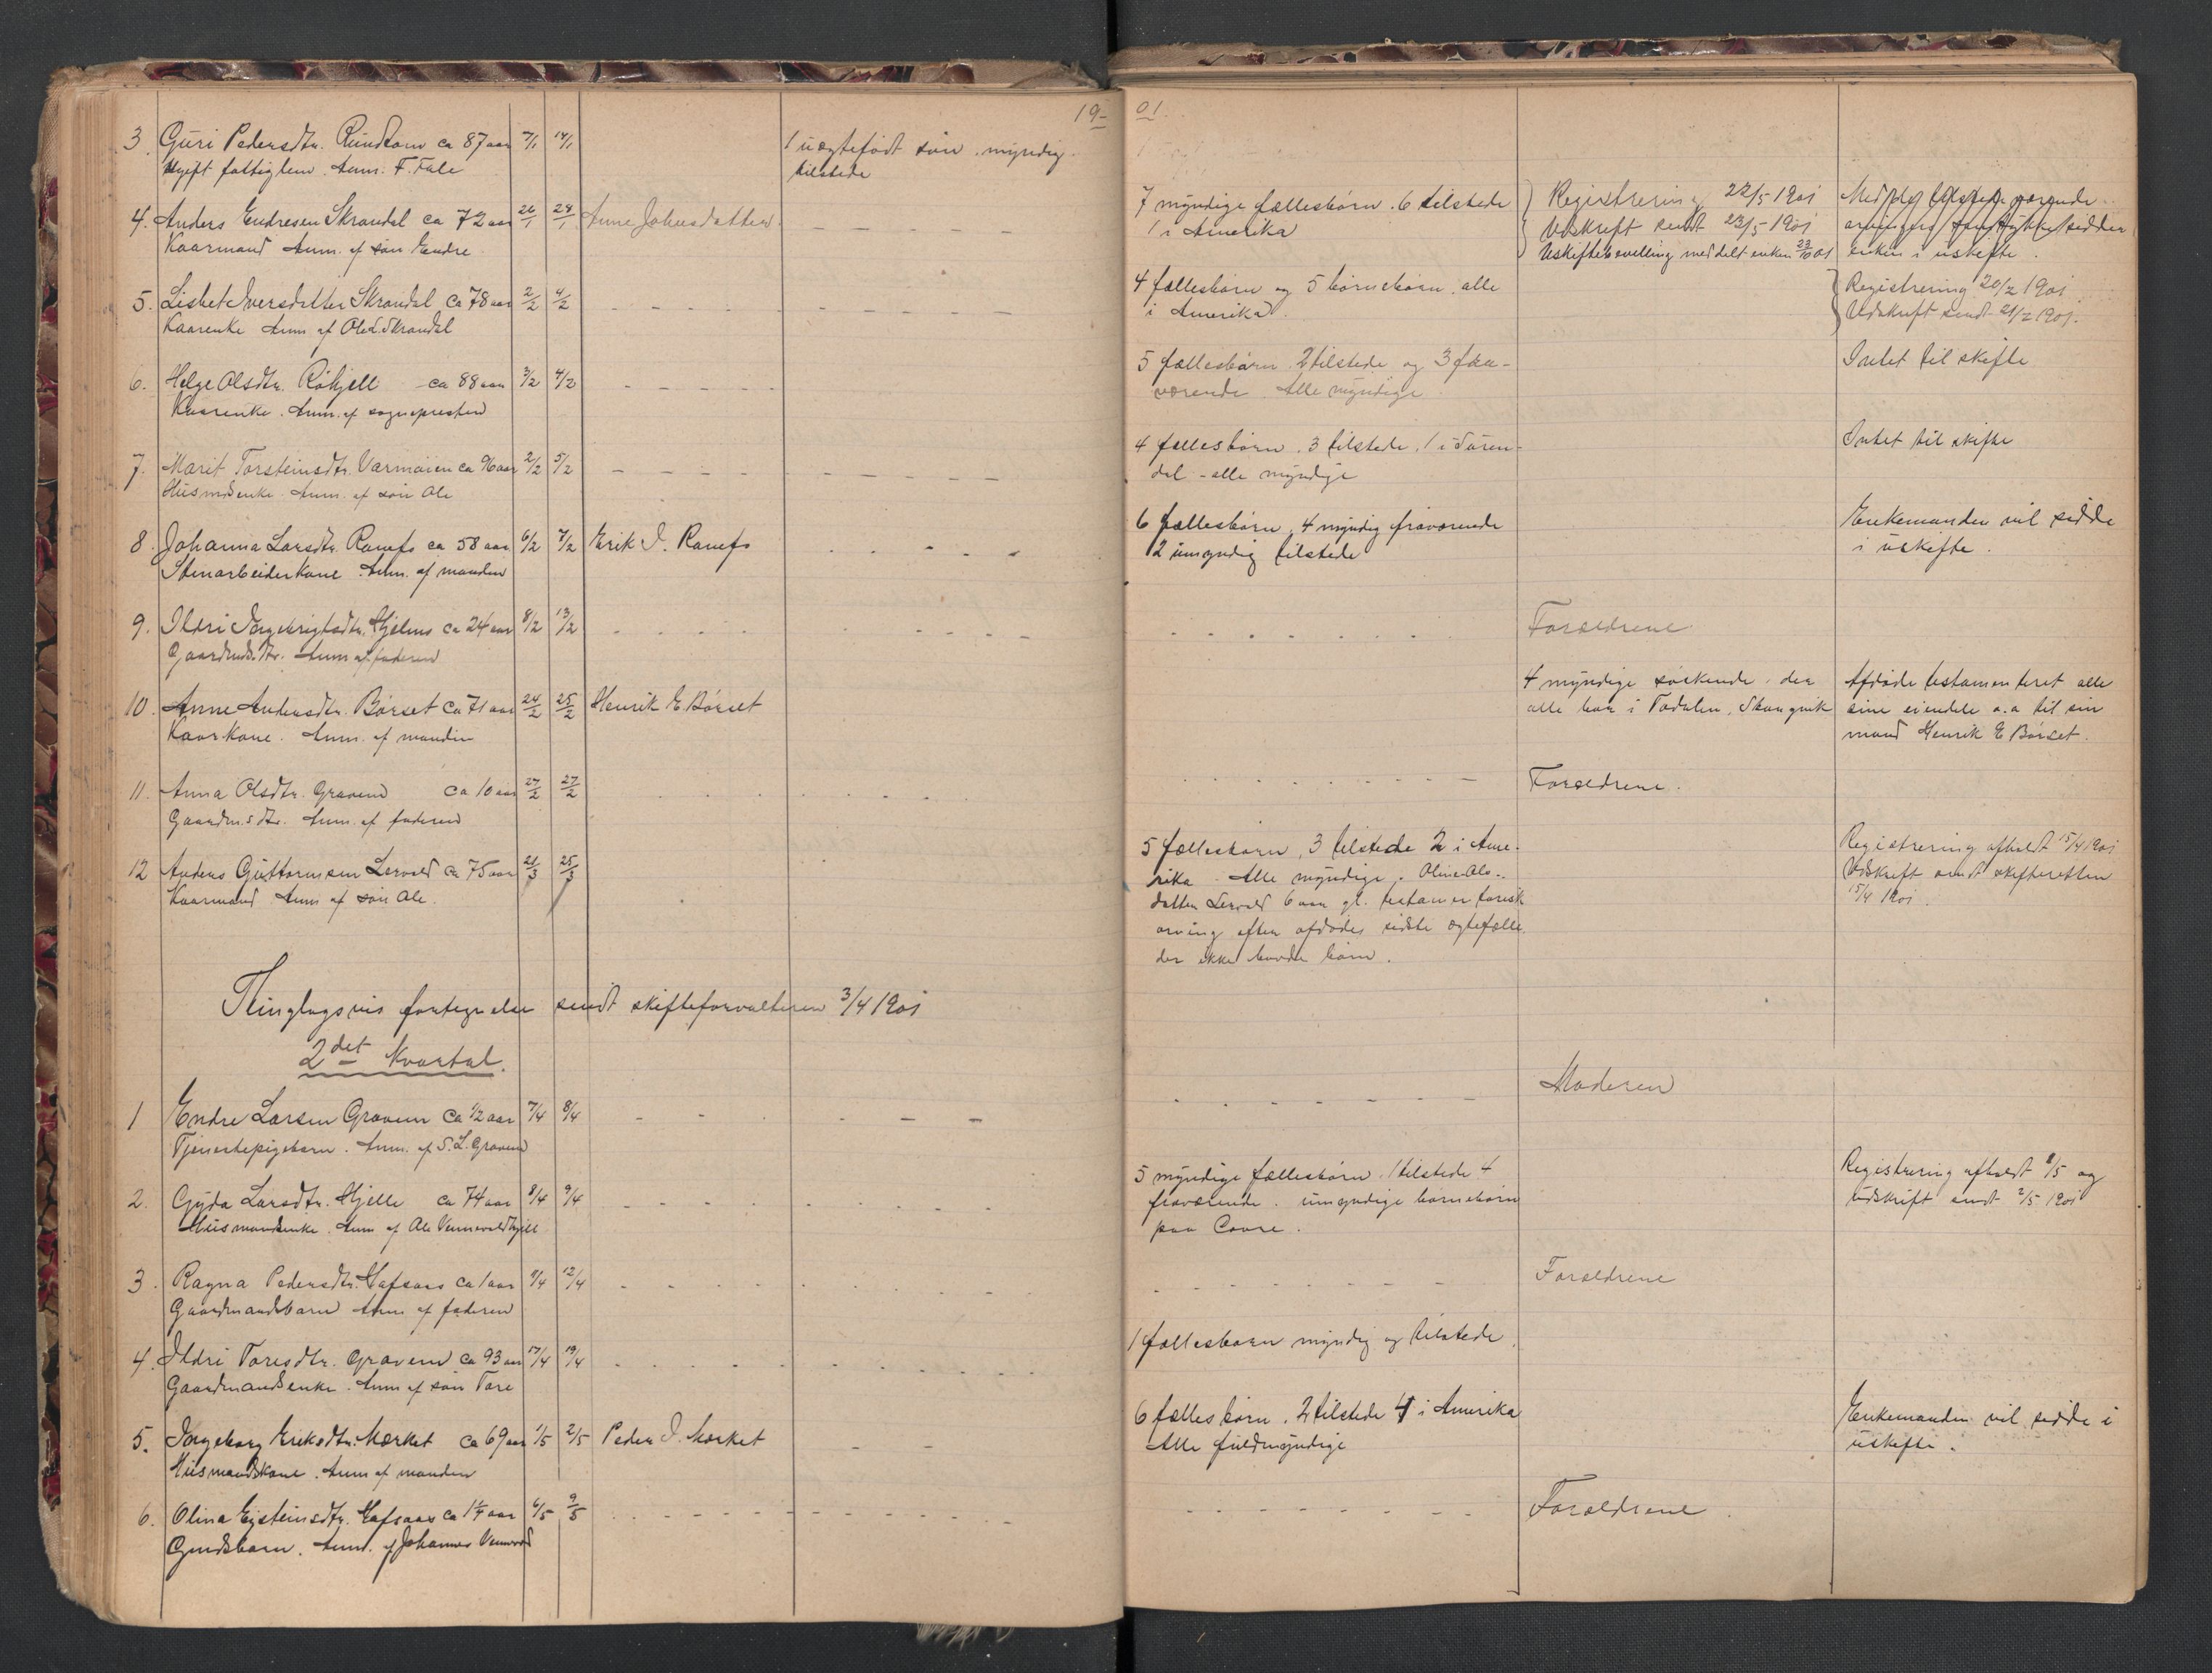 19-
01.
3. Guri Pedersdtr. ca 87 aar 7/1 14/1
Ugift fattiglem. Anm. F. Fale
1 uægtefødt søn. myndig
tilstede
4. Anders Endresen Skrondal ca 72 aar 26/1 29/1 Anne Johnsdatter
Kaarmand Anm. af søn Endre
7 myndige fællesbørn. 6 tilstede
1 i Amerika
Registrering 22/5-1901
Udskrift sendt 23/5-1901
Uskiftebevilling meddelt enken 23/10 01
enken i uskifte.
5. Lisbet Iversdatter Skrondal ca 78 aar 2/2 4/2
Kaarenke Anm af Ole L Skrondal
4 fællesbørn og 5 børnebørn. alle
i Amerika.
Registrering 20/2 1901
Udskrift sendt 21/2 1901.
6. Helge Olsdtr. Röhjell ca 88 aar 3/2 4/2
Kaarenke. Anm. af sognepresten
5 fællesbørn. 2 tilstede og 3 fra-
værende. Alle myndige
Intet til skifte
7. Marit Torsteinsdtr. Varmøien ca 96 aar 2/2 5/2
Husmdsenke. Anm. af søn Ole
4 fællesbørn. 3 tilstede, 1 i Suren-
dal - alle myndige
Intet til skifte
8. Johanna Larsdtr. Ranefs ca 58 aar 6/2 7/2 Erik I. Ranefs
Stenarbeiderkone. Anm. af manden
6 fællesbørn, 4 myndig fraværende
2 umyndig tilstede
Enkemanden vil sidde
i uskifte.
9. Ildri Ingebrigtsdtr. Hjelms ca 24 aar 8/2 13/2
Gaardmds.dtr. Anm af faderen
Forældrene
10. Anne Andersdtr. Børset ca 71 aar 24/2 25/2 Henrik E Børset
Kaarkone. Anm. af manden
4 myndige søskende, der
alle bor i Todalen, Stangvik
Afdøde testamenteret alle
sine eiendele a.a til sin
mand Henrik E Børset.
11. Anna Olsdtr. Gravem ca 10 aar 27/2 27/2
Gaardm.s dtr. Anm. af faderen
Forældrene.
12 Anders Guttormsen Lervold ca 75 aar 21/3 25/3
Kaarmand Anm af søn Ole.
5 fællesbørn, 3 tilstede 2 i Ame-
rika. Alle myndige. Oline Ols-
datter Lervold 6 aar gl. testamentarisk
arving efter afdødes sidste ægtefælle
der ikke havde børn.
Registrering afholdt 15/4 1901
Udskrift sendt skifteretten
15/4 1901.
Thinglagsvis fortegnelse sendt skifteforvalteren 3/4 1901
2det Kvartal.
1 Endre Larsen Gravem ca 1/2 aar 7/4 8/4
Tjenestepigebarn. Anm. af S. L. Gravem
Moderen
2. Gyda Larsdtr. Hjelle ca 74 aar 8/4 9/4
Husmandsenke. Anm af Ole Vennevoldhjell
5 myndige fællesbørn. 1 tilstede 4
fraværende. umyndige børnebørn
paa
Registrering afholdt 2/5 og
udskrift sendt 2/5 1901
3. Ragna Pedersdtr. Hafsaas ca 1 aar 9/4 12/4
Gaardmandsbarn Anm af faderen
Forældrene
4. Ildri Toresdtr. Gravem ca 93 aar 17/4 19/4
Gaardmandsenke. Anm af søn Tore
1 fællesbarn myndig og tilstede.
5. Ingeborg Eriksdtr. Mørket ca 69 aar 1/5 2/5 Peder I. Mørket
Husmandskone. Anm af manden
6 fællesbørn. 2 tilstede 4 i Amerika
Alle fuldmyndige
Enkemanden vil sidde i
uskifte.
6. Olina Eysteinsdtr. Hafsaas ca 1 1/4 aar 6/5 9/5
Gmdsbarn. Anm. af Johannes Vennevold
Forældrene.